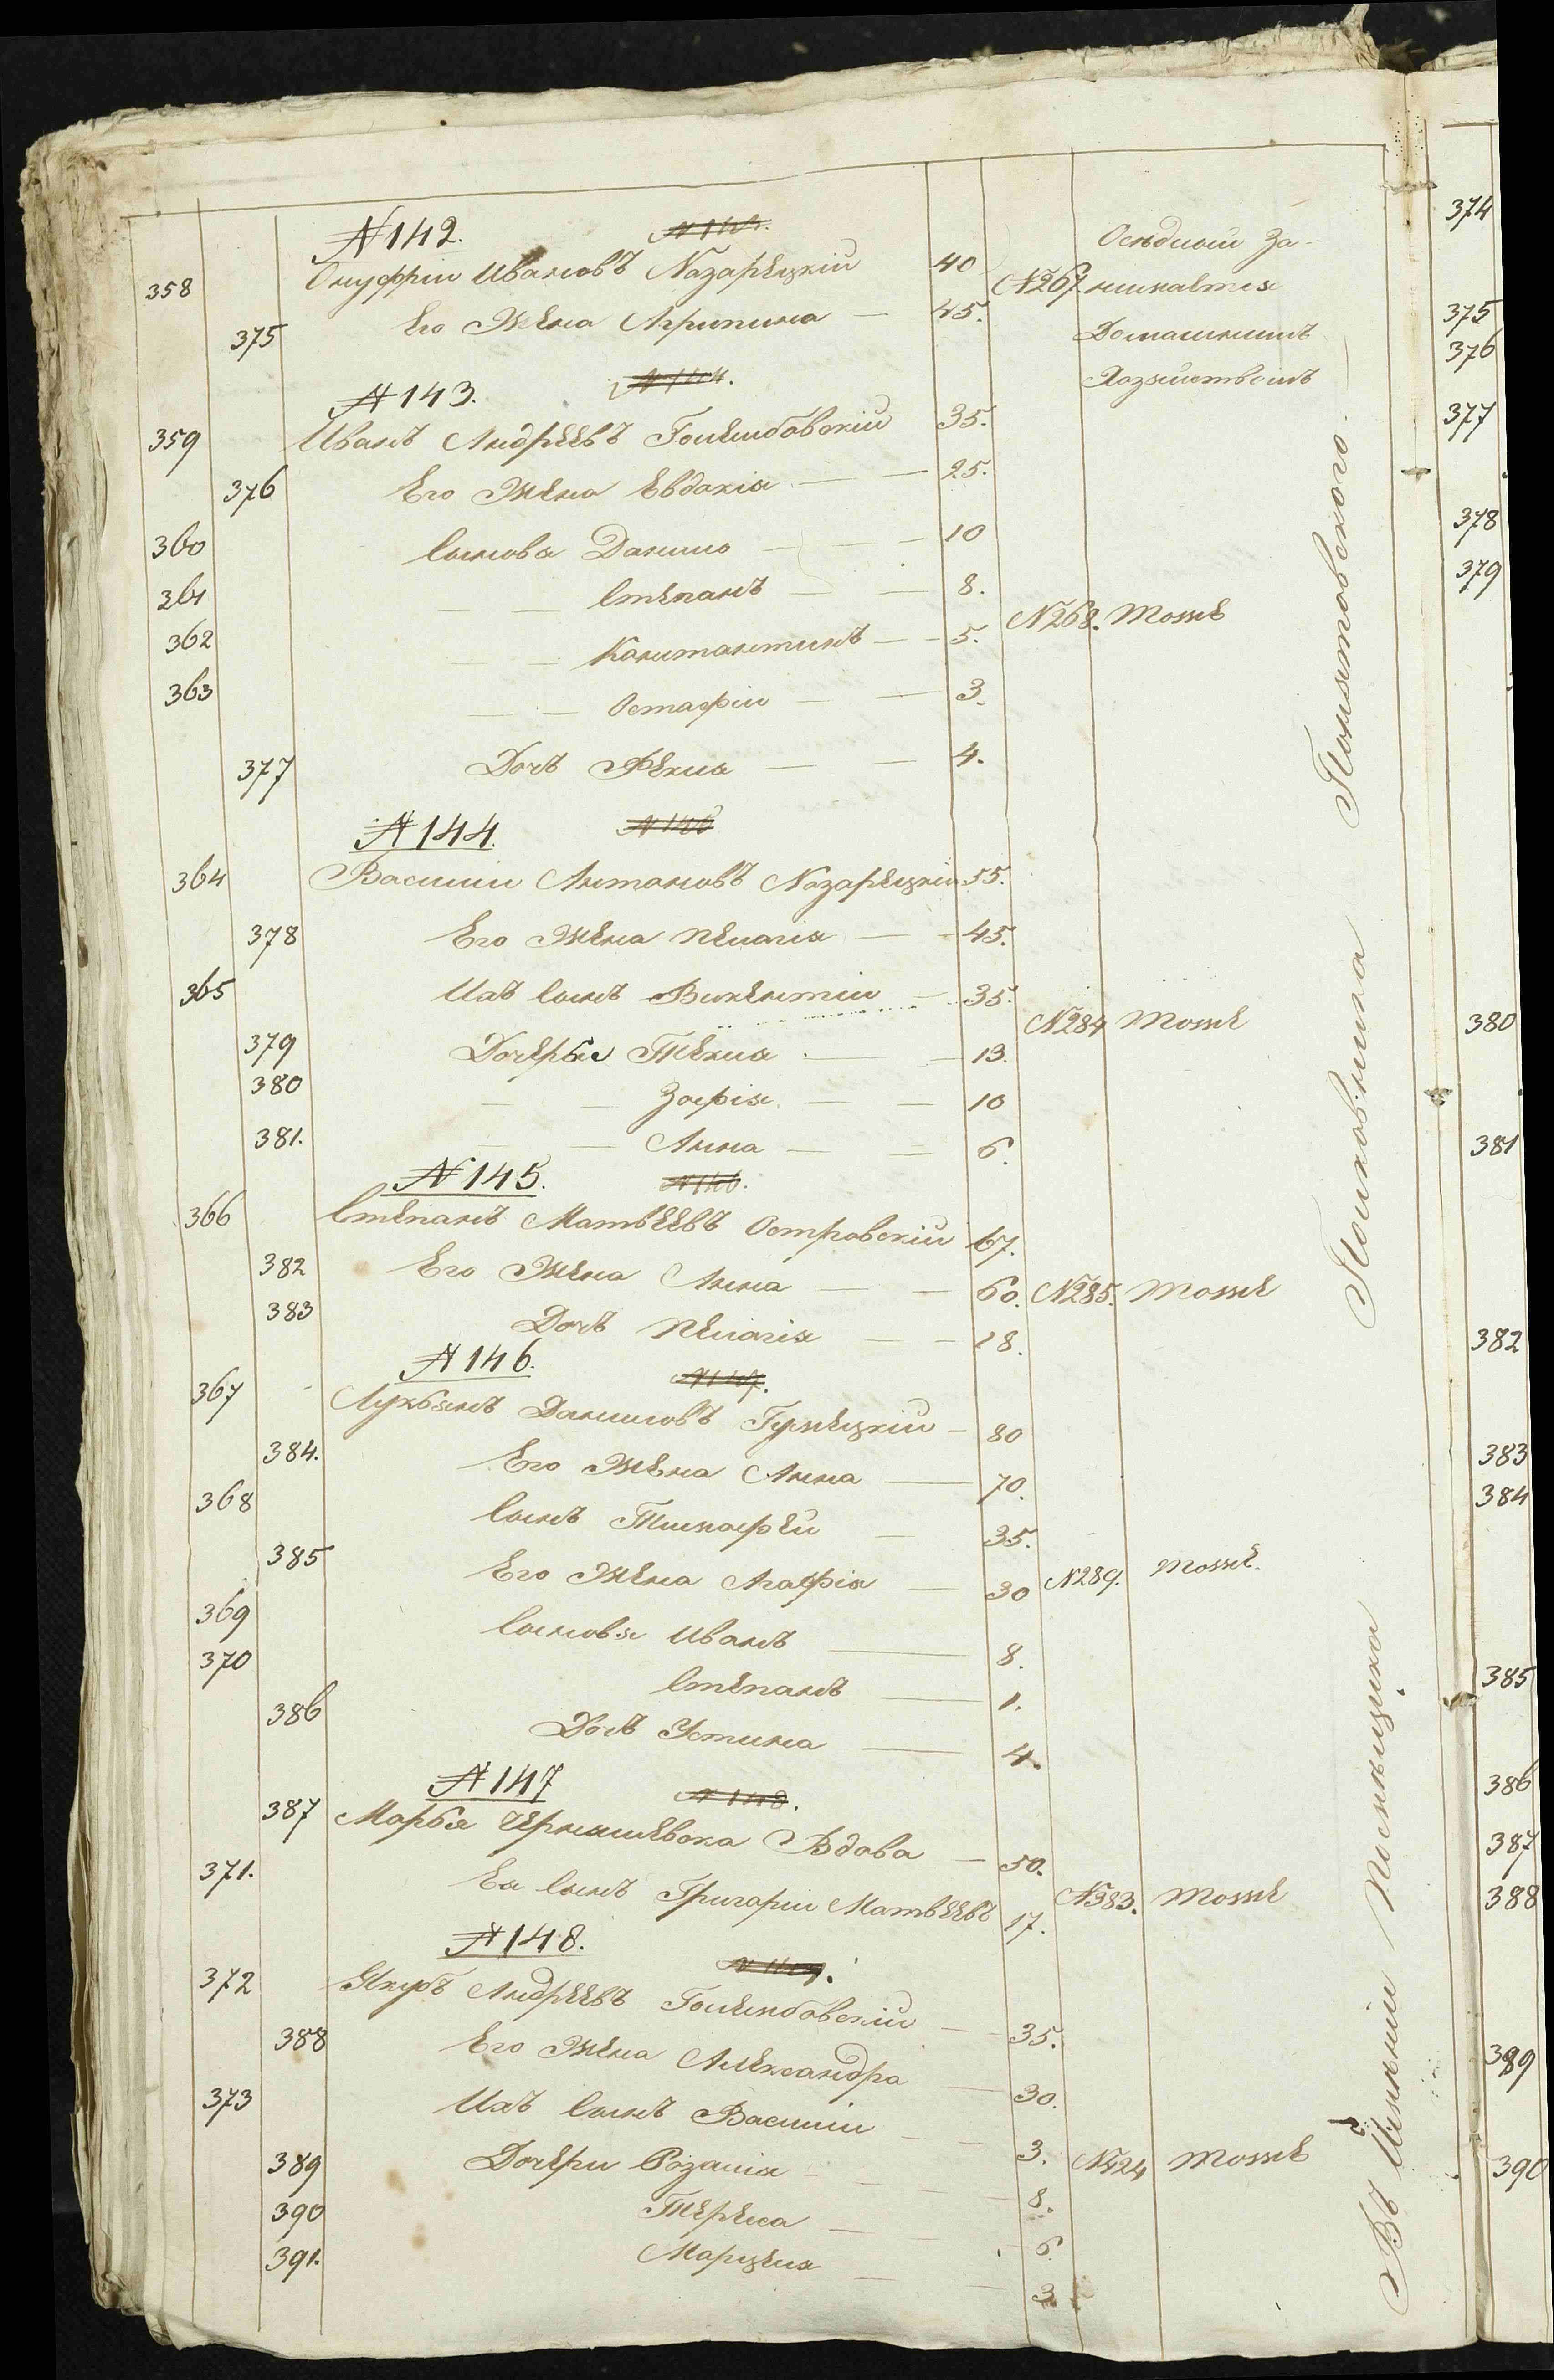 N 142.
358 Онуфрій Ивановъ Назарецкій 40 N267 Осѣдлой За-
нимается
375 Его Жена Агрипина — 45. Домашнимъ
Хозяйствомъ
N 143. N 144.
359 Иванъ Андреевъ Голембовскій 35.
376 Его Жена Евдокія — — 25.
360 Сыновья Данило — — 10
361 — — Степанъ — — 8.
362 — — Константинъ — — 5. N268. Тоже
363 — — Остафій — — 3.
377 Дочь Фекла — — 4.
N 144.
364 Василій Антоновъ Назарецкій 55.
378 Его Жена Пелагія — — 45.
365 Ихъ Сынъ Викентій — 35. N284 Тоже
379 Дочерые Текла — — 13.
380 — — Зофія — — 10
381. — — Анна — — 6.
N 145. N 146.
366 Степанъ Матвеевъ Островскій 67.
382 Его Жена Анна — — 60. N285. Тоже
383 Дочь Пелагія — — 18.
N 146. N 147.
367 Лукьянъ Даниловъ Гумецкій — 80
384. Его Жена Анна — 70.
368 Сынъ Тимофей — 35.
385 Его Жена Агафія — 30 N289. Тоже
369 Сыновья Иванъ — 8.
370 Степанъ — 1.
386 Дочь Устина — 4.
N 147 N 148.
387 Марья Чернышевска Вдова — 50.
371. Ея Сынъ Григорій Матвеевъ 17. N383. Тоже
N 148. N 149.
372 Якубъ Андреевъ Голембовскій — 35.
388 Его Жена Александра — 30.
373 Ихъ Сынъ Василій — — 3. N424 Тоже
389 Дочери Розалія — — 8.
390 Тереса — — 6.
391. Марцеля — — 3
Въ Имѣніи Помѣщика Полковника Понятовского
374
375
376
377
378
379
380
381
382
383
384
385
386
387
388
389
390